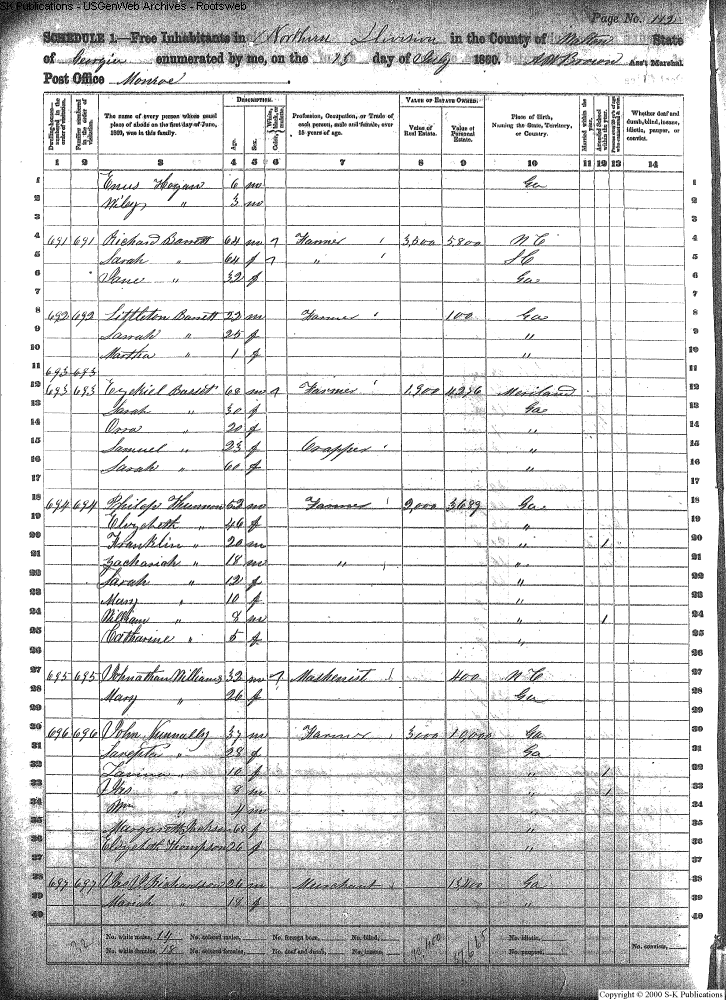 S-K Publications - USGenWeb Archives - Rootsweb
Page No. 112
SCHEDULE 1.—Free Inhabitants in Northern Division in the County of Walton State
of Georgia enumerated by me, on the day of July 1860. Ass't Marshal.
Post Office Monroe
Dwelling-houses—numbered in the order of visitation.
Families numbered in the order of visitation.
The name of every person whose usual place of abode on the first day of June, 1860, was in this family.
DESCRIPTION.
Age.
Sex.
Color, White, black, or mulatto.
Profession, Occupation, or Trade of each person, male and female, over 15 years of age.
VALUE OF ESTATE OWNED.
Value of Real Estate.
Value of Personal Estate.
Place of Birth, Naming the State, Territory, or Country.
Married within the year.
Attended School within the year.
Whether deaf and dumb, blind, insane, idiotic, pauper, or convict.
1 2 3 4 5 6 7 8 9 10 11 12 13 14
1 Enus Hogan 6 m Ga 1
2 Wiley " 3 m 2
3
4 691 691 Richard Barrett 64 m Farmer 3,500 5,800 N C 4
5 Sarah " 64 f " S C 5
6 Jane " 32 f Ga 6
7
8 692 692 Littleton Barrett 22 m Farmer 100 Ga 8
9 Sarrah " 25 f " 9
10 Martha " 1 f " 10
11 693 693 11
12 693 693 Ezekiel Basset 68 m Farmer 1,900 4,276 Meriland 12
13 Sarah " 30 f Ga 13
14 Orra " 20 f " 14
15 Samuel " 23 f Cropper " 15
16 Sarah " 60 f " 16
17
18 694 694 Philip Thurmon 52 m Farmer 2,000 3,689 Ga 18
19 Elizabeth " 46 f " 19
20 Franklin " 20 m " 1 20
21 Zachariah " 18 m " " 21
22 Sarah " 12 f " 22
23 Mary " 10 f " 23
24 William " 8 m " 1 24
25 Catharine " 5 f " 25
26
27 695 695 Johnathan Williams 32 m Mashenist 400 N C 27
28 Mary " 26 f Ga 28
29
30 696 696 John Nunnally 37 m Farmer 3,000 10,000 Ga 30
31 Sarepta " 28 f Ga 31
32 Lavina " 10 f " 1 32
33 Jas " 8 m " 1 33
34 Wm " 4 m " 34
35 Margarett 68 f " 35
36 Elizabeth Thompson 26 f " 36
37
38 697 697 Richardson 26 m Merchant Ga 38
39 Mariah " 18 f " 39
40
No. white males, 14 No. colored males, No. foreign born, No. blind, No. idiotic,
No. white females, 18 No. colored females, No. deaf and dumb, No. insane, No. paupers, No. convicts,
Copyright © 2000 S-K Publications